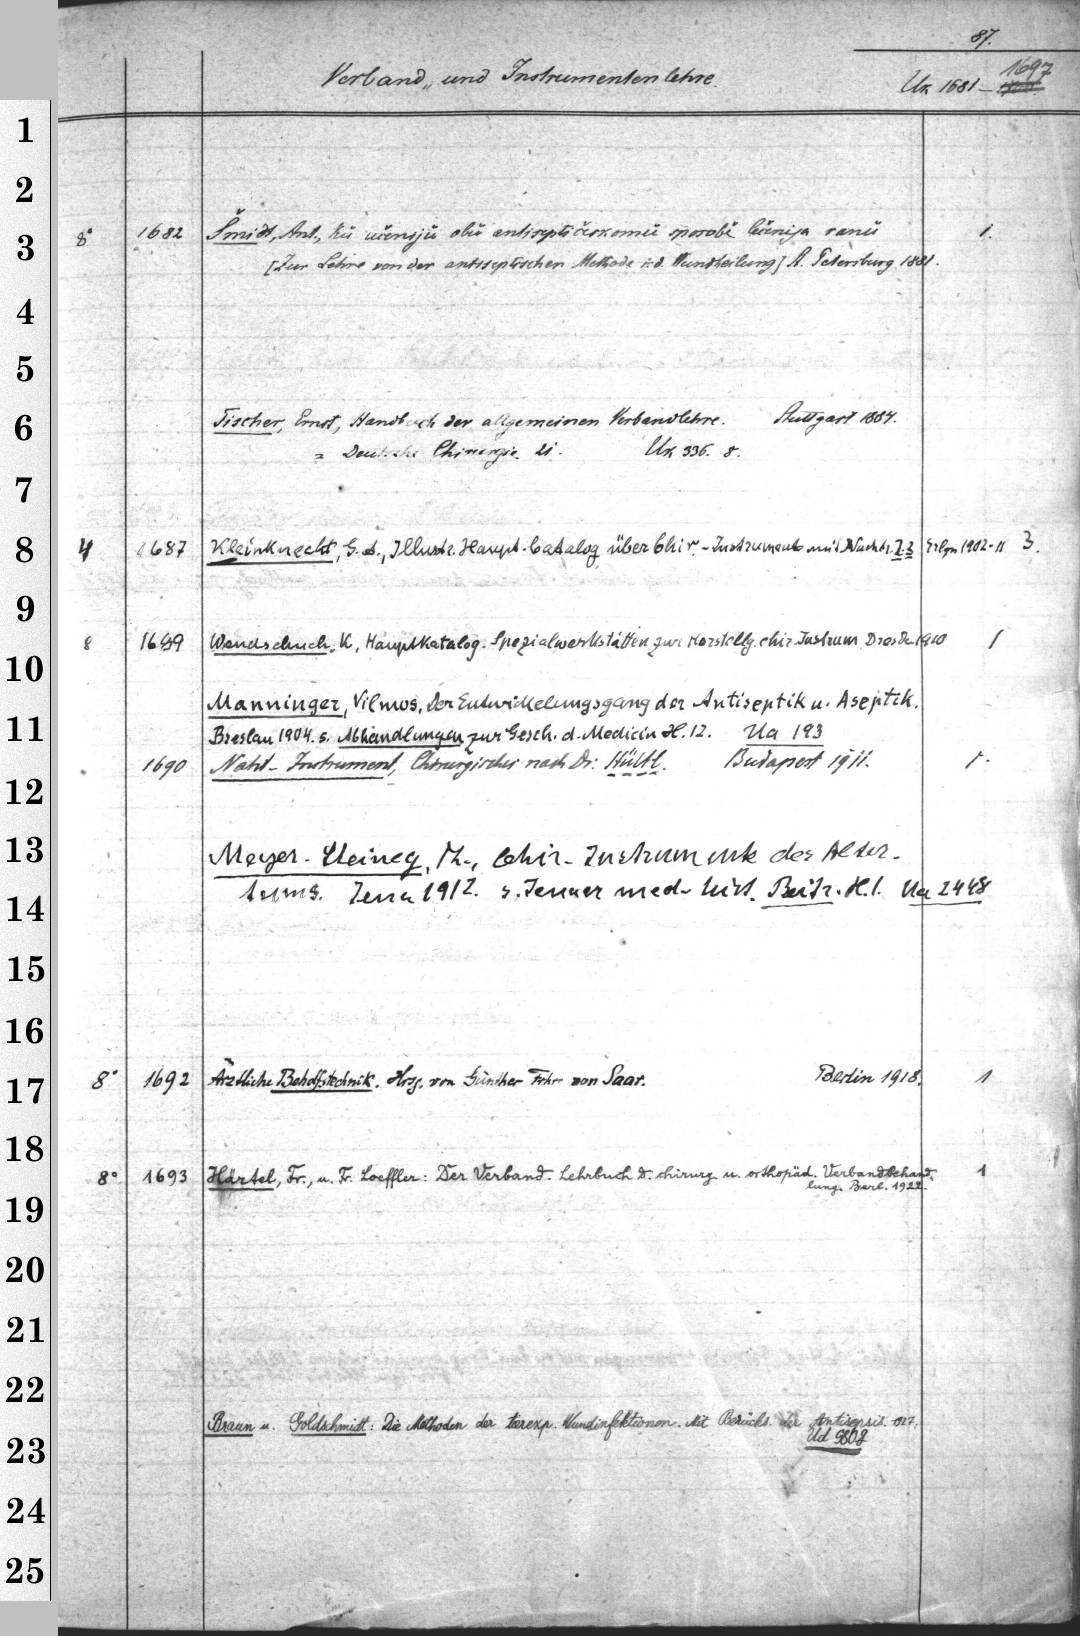 87.
Verband- und Instrumentenlehre. Uk 1681 – 1697
1
2
3 8° 1682 Šmidt, Ant., Kŭ učeniju obŭ antiseptičeskomŭ sposobě lěčenija ranŭ 1.
[Zur Lehre von der antiseptischen Methode i. d. Wundheilung] St. Petersburg 1881.
4
5
6 Fischer, Ernst, Handbuch der allgemeinen Verbandlehre. Stuttgart 1884.
= Deutsche Chirurgie. 21. Uk 336. 8.
7
8 4 1687 Kleinknecht, G. A., Illustr. Haupt-Catalog über Chir.-Instrumente mit Nachtr. 1.2 Erlgn 1902-11 3.
9
8 1689 Wendschuch, K, Hauptkatalog. Spezialwerkstätten zur Herstellg. chir. Instrum. Dresden 1910 1
10
Manninger, Vilmos, Der Entwickelungsgang der Antiseptik u. Aseptik.
11 Breslau 1904. s. Abhandlungen zur Gesch. d. Medicin H. 12. Ua 193
1690 Naht-Instrument, Chirurgisches nach Dr. Hültl. Budapest 1911. 1.
12
13 Meyer-Steineg, Th., Chir-Instrumente des Alter-
14 tums. Jena 1912. s. Jenaer med-hist. Beitr. H. 1. Ua 2448
15
16
17 8° 1692 Ärztliche Behelfstechnik. Hrsg. von Günther Frhr von Saar. Berlin 1918. 1
18 8° 1693 Härtel, Fr., u. Fr. Loeffler: Der Verband. Lehrbuch d. chirurg u. orthopäd. Verbandbehand-
lung. Berl. 1922. 1
19
20
21
22
Braun u. Goldschmidt: Die Methoden der tierexp. Wundinfektionen. Mit Berücks. der Antisepsis. 927.
23 Ud 9808
24
25